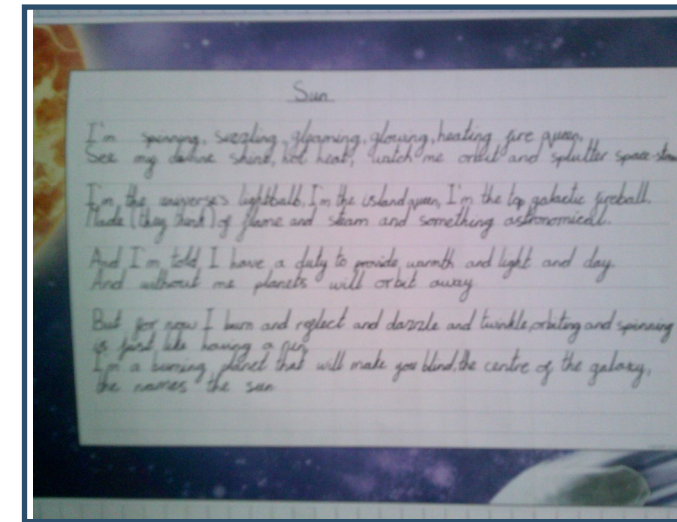 Sun
I'm spinning, sizzling, gleaming, glowing, heating fire queen,
See my divine shine, hot heat, watch me orbit and splutter space-
I'm the universe's lightball, I'm the island queen, I'm the top galactic fireball.
Made (they think) of flame and steam and something astronomical.
And I'm told I have a duty to provide warmth and light and day.
And without me planets will orbit away
But for now I burn and reflect and dazzle and twinkle, orbiting and spinning
is just like having a
I'm a burning planet that will make you blind, the centre of the galaxy,
the names the sun